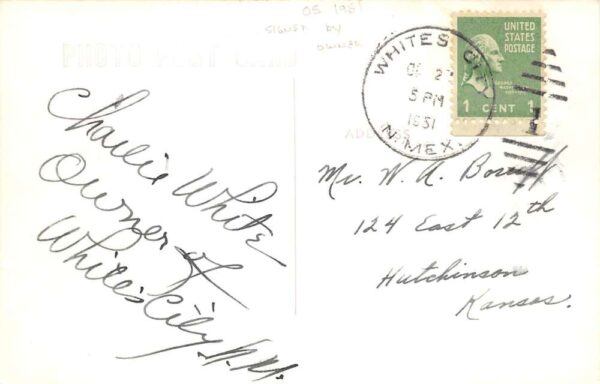 OS 1951
SIGNED by
OWNER
PHOTO POST CARD
WHITES CITY
5 PM
1951
N. MEX.
UNITED
STATES
POSTAGE
1 CENT 1
ADDRESS
Charlie White
Owner of
White's City, N.M.
Mr. W. A.
124 East 12th
Hutchinson
Kansas.